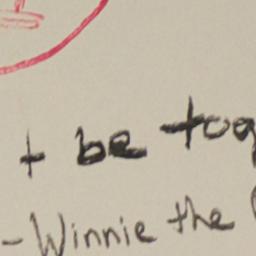 t be tog
-Winnie the